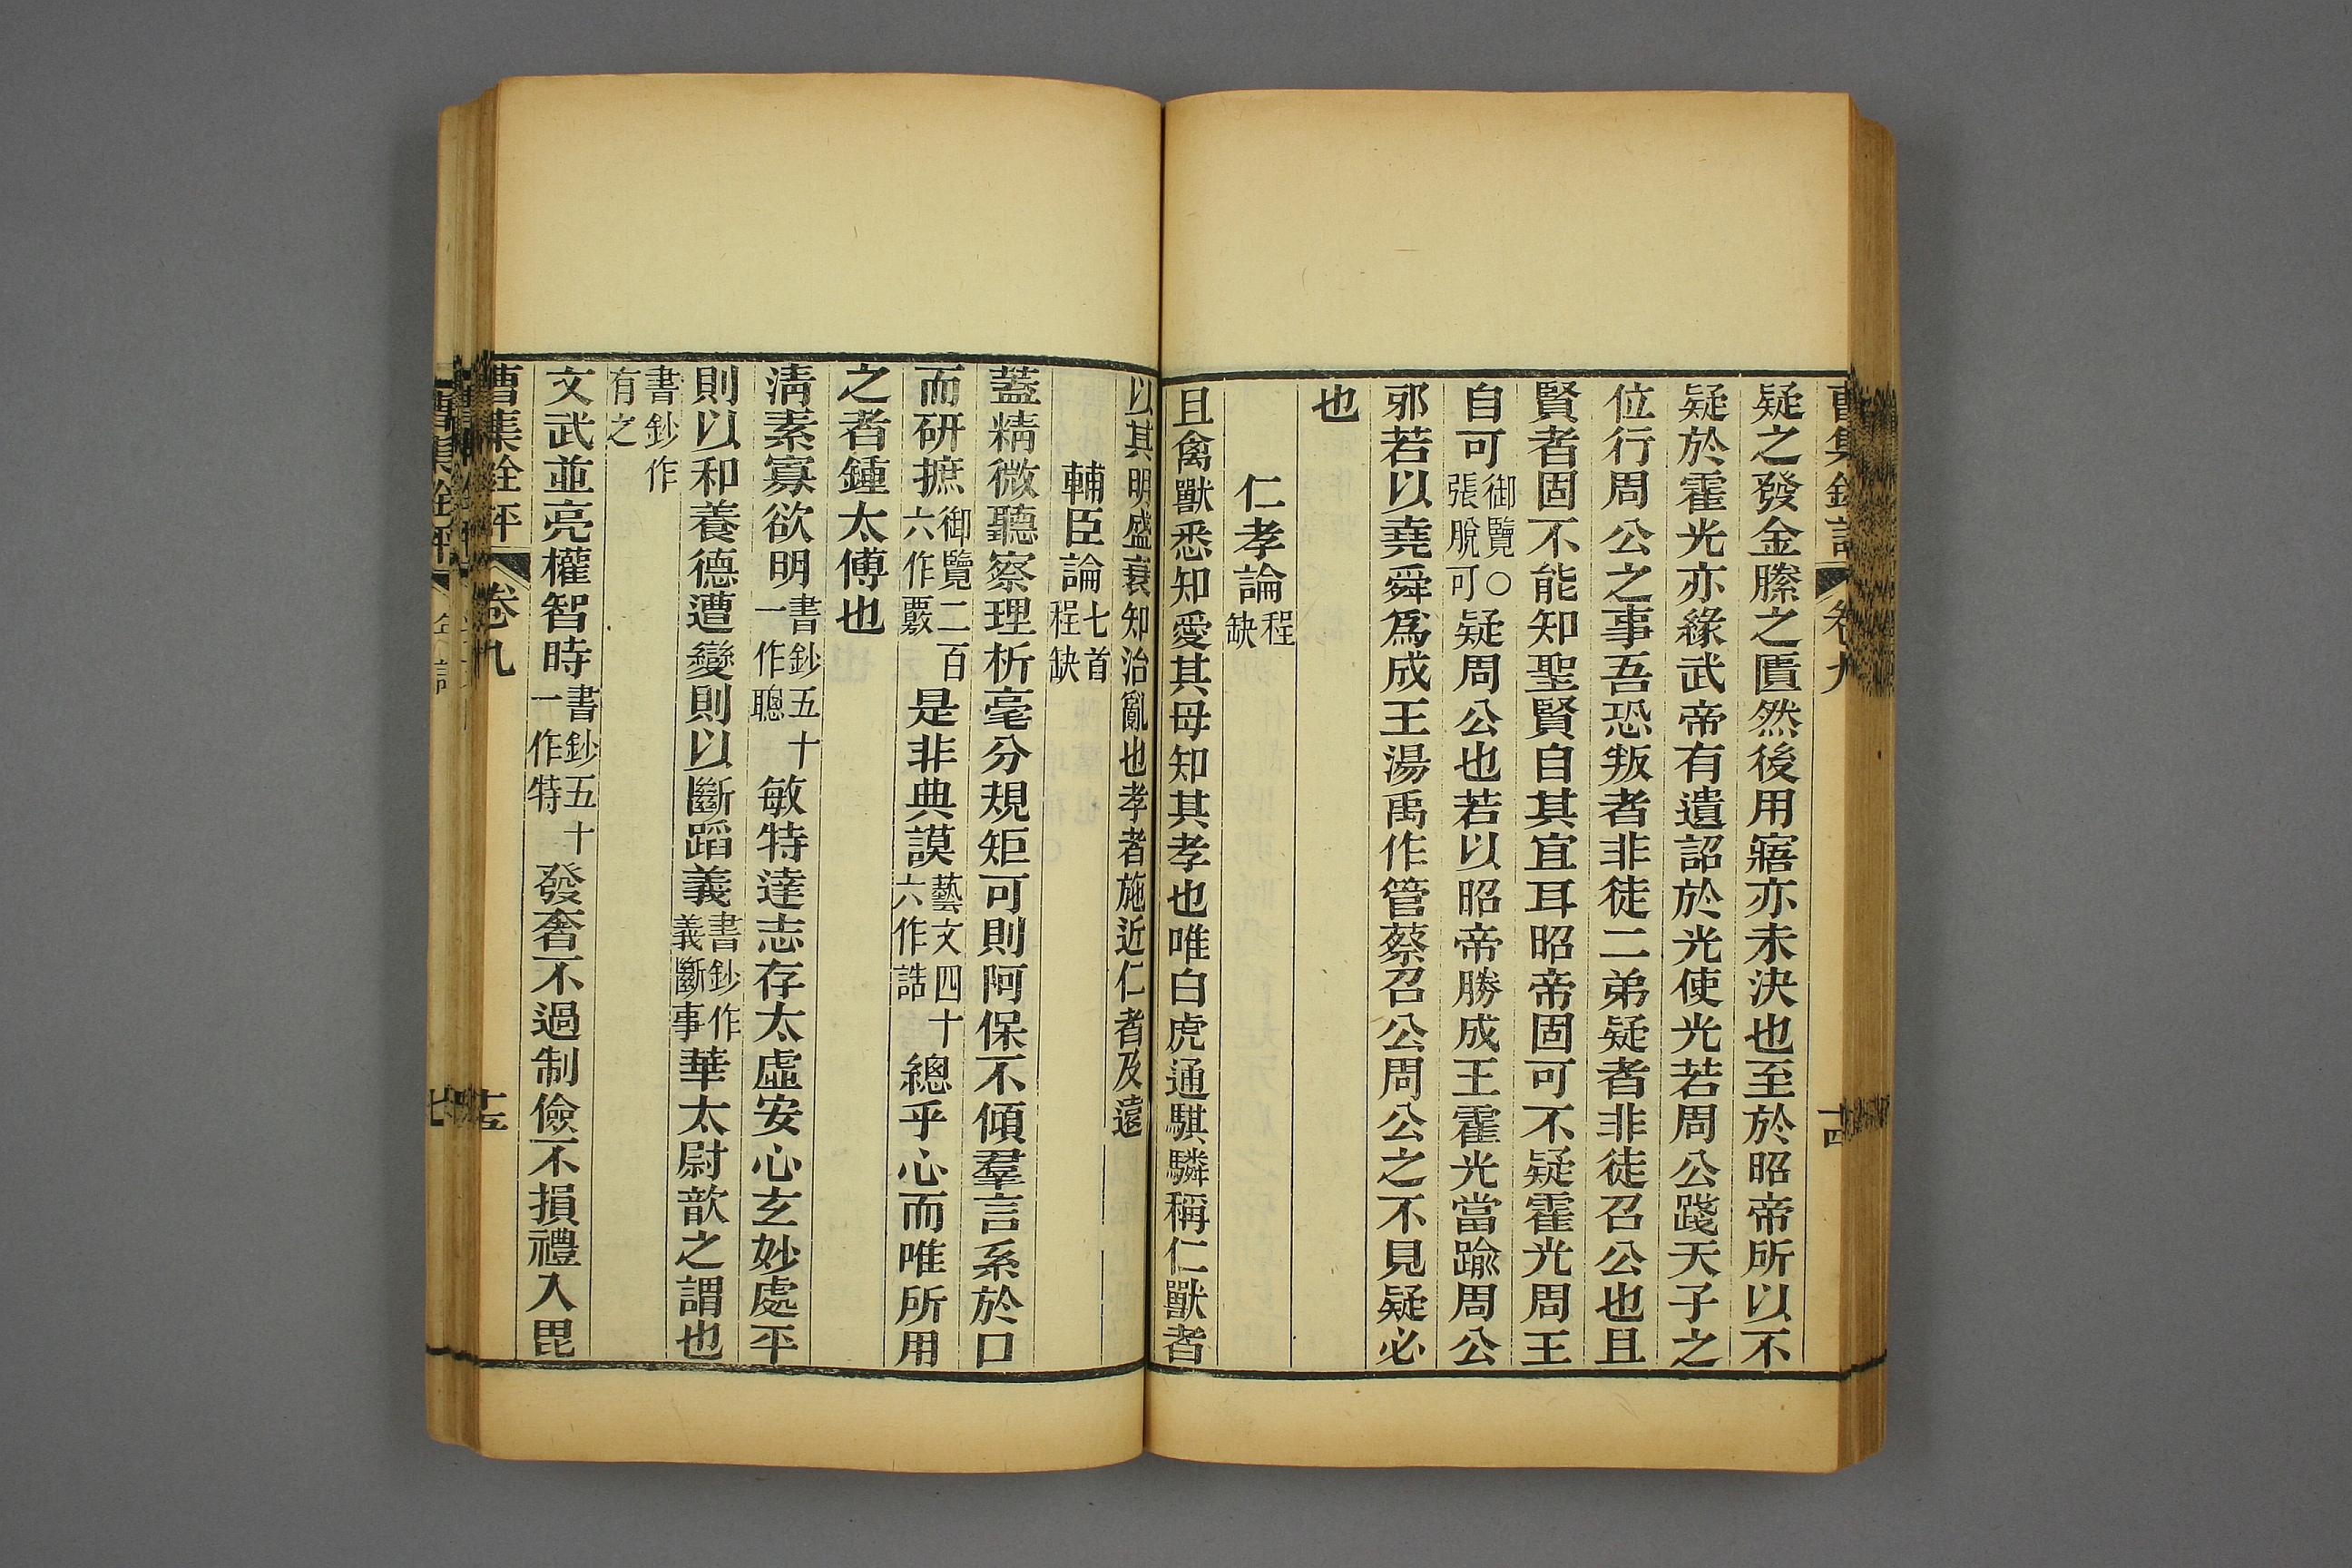 疑之發金縢之匱然後用寤亦未決也至於昭帝所以不
疑於霍光亦緣武帝有遺詔於光使光若周公踐天子之
位行周公之事吾恐叛者非徒二弟疑者非徒召公也且
賢者固不能知聖賢自其宜耳昭帝固可不疑霍光周王
自可御覽〇張脫可疑周公也若以昭帝勝成王霍光當踰周公
邪若以堯舜爲成王湯禹作管蔡召公周公之不見疑必
也
仁孝論程缺
且禽獸悉知愛其母知其孝也唯白虎通騏驎稱仁獸者
以其明盛衰知治亂也孝者施近仁者及遠
輔臣論七首程缺
蓋精微聽察理析毫分規矩可則阿保不傾羣言系於口
而研摭御覽二百六作覈是非典謨藝文四十六作誥總乎心而唯所用
之者鍾太傅也
淸素寡欲明書鈔五十一作聰敏特達志存太虛安心玄妙處平
則以和養德遭變則以斷蹈義書鈔作義斷事華太尉歆之謂也
書鈔作有之
文武並亮權智時書鈔五十一作特發奢不過制儉不損禮入毘
曹集銓評
卷九
十五
卷九
十四